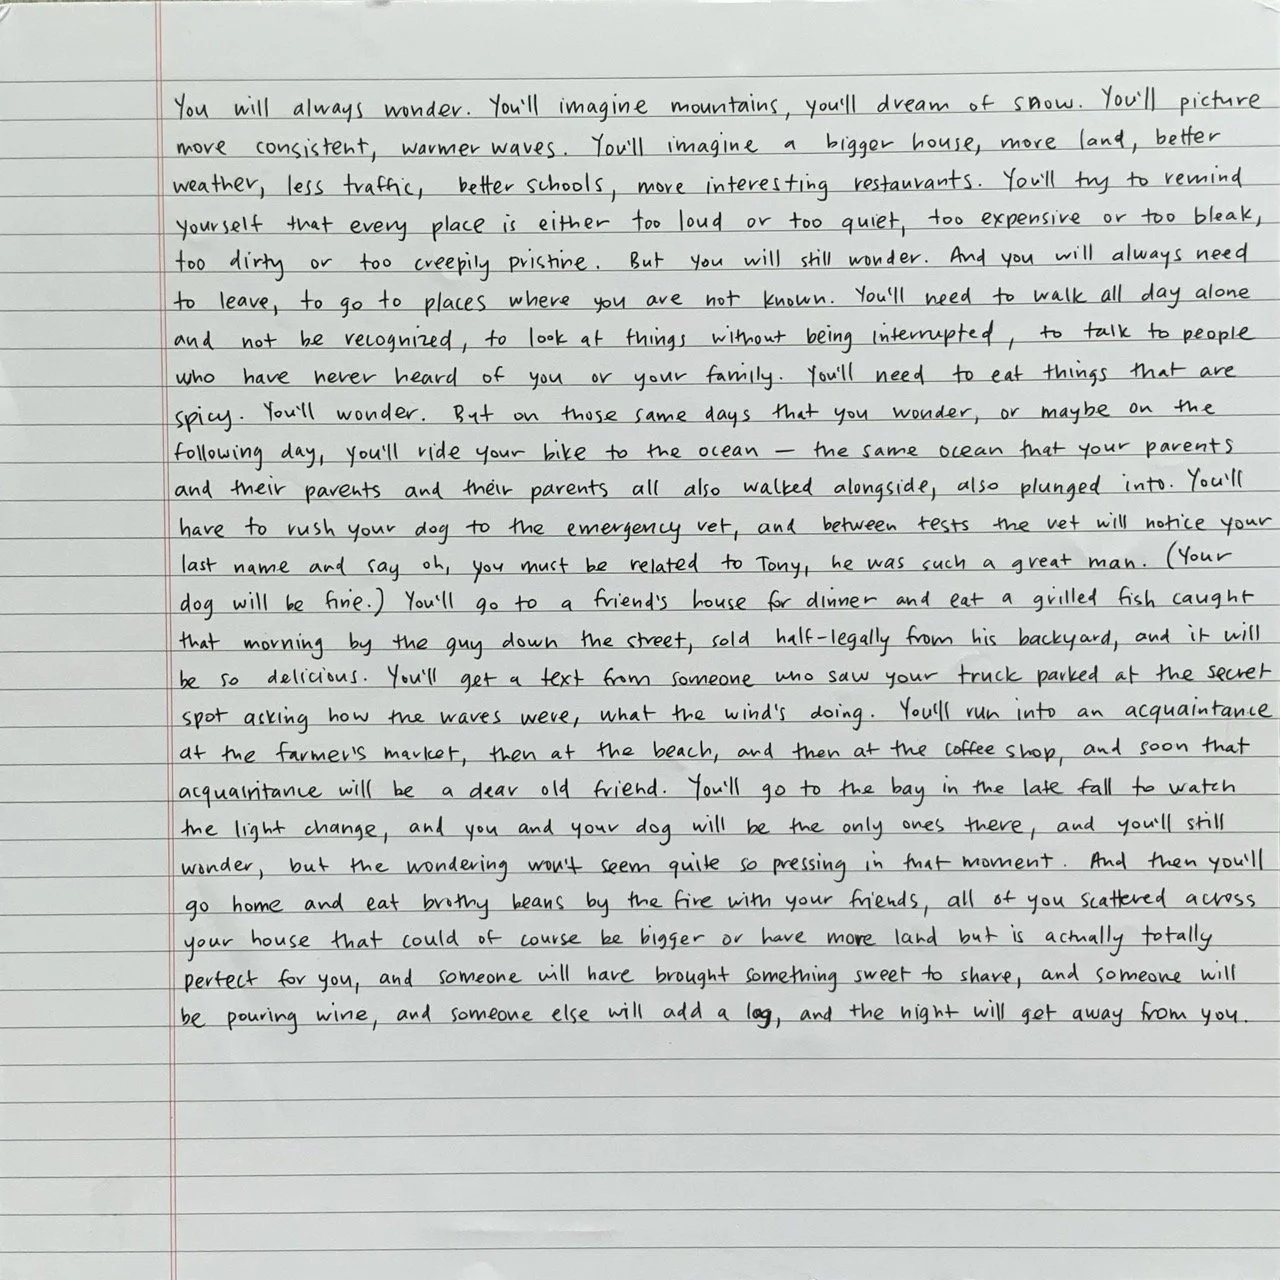 You will always wonder. You'll imagine mountains, you'll dream of snow. You'll picture
more consistent, warmer waves. You'll imagine a bigger house, more land, better
weather, less traffic, better schools, more interesting restaurants. You'll try to remind
yourself that every place is either too loud or too quiet, too expensive or too bleak,
too dirty or too creepily pristine. But you will still wonder. And you will always need
to leave, to go to places where you are not known. You'll need to walk all day alone
and not be recognized, to look at things without being interrupted, to talk to people
who have never heard of you or your family. You'll need to eat things that are
spicy. You'll wonder. But on those same days that you wonder, or maybe on the
following day, you'll ride your bike to the ocean — the same ocean that your parents
and their parents and their parents all also walked alongside, also plunged into. You'll
have to rush your dog to the emergency vet, and between tests the vet will notice your
last name and say oh, you must be related to Tony, he was such a great man. (Your
dog will be fine.) You'll go to a friend's house for dinner and eat a grilled fish caught
that morning by the guy down the street, sold half-legally from his backyard, and it will
be so delicious. You'll get a text from someone who saw your truck parked at the secret
spot asking how the waves were, what the wind's doing. You'll run into an acquaintance
at the farmer's market, then at the beach, and then at the coffee shop, and soon that
acquaintance will be a dear old friend. You'll go to the bay in the late fall to watch
the light change, and you and your dog will be the only ones there, and you'll still
wonder, but the wondering won't seem quite so pressing in that moment. And then you'll
go home and eat brothy beans by the fire with your friends, all of you scattered across
your house that could of course be bigger or have more land but is actually totally
perfect for you, and someone will have brought something sweet to share, and someone will
be pouring wine, and someone else will add a log, and the night will get away from you.